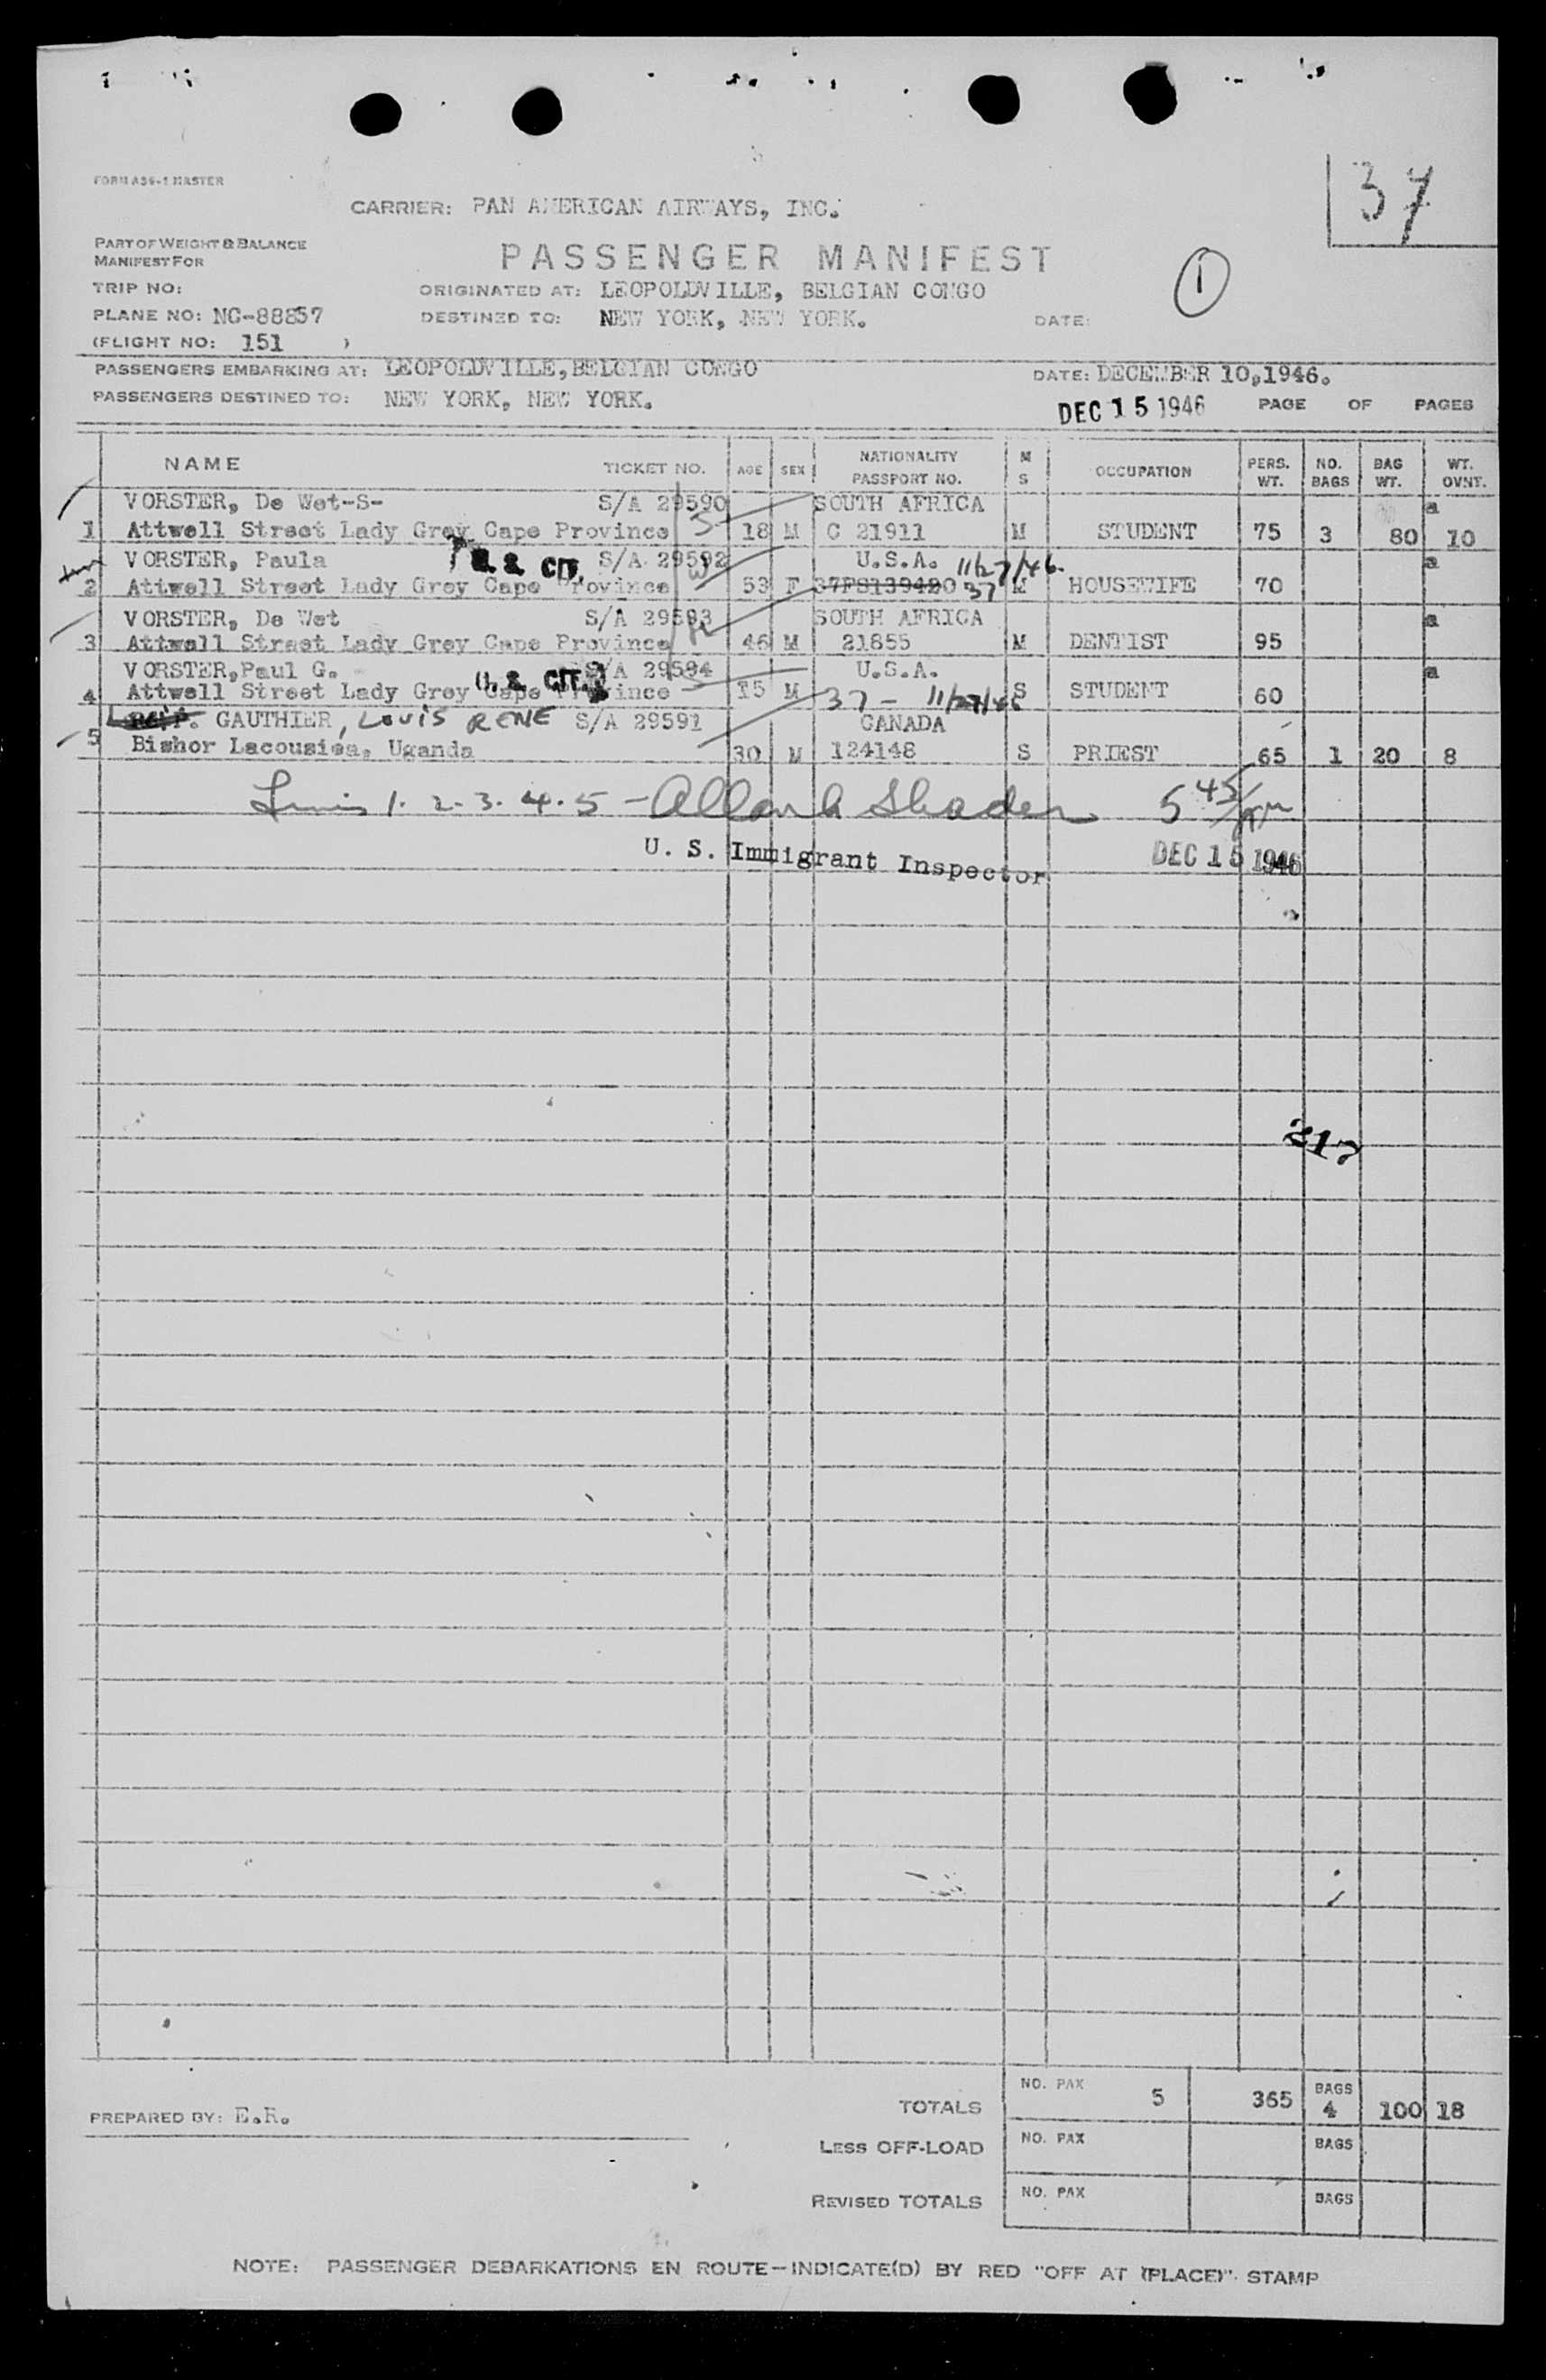 37
FORM A36-1 MASTER
CARRIER: PAN AMERICAN AIRWAYS, INC.
PART OF WEIGHT & BALANCE
MANIFEST FOR
PASSENGER MANIFEST
1
TRIP NO:
ORIGINATED AT: LEOPOLDVILLE, BELGIAN CONGO
PLANE NO: NC-88857
DESTINED TO: NEW YORK, NEW YORK.
DATE:
(FLIGHT NO: 151 )
PASSENGERS EMBARKING AT: LEOPOLDVILLE, BELGIAN CONGO
DATE: DECEMBER 10, 1946.
PASSENGERS DESTINED TO: NEW YORK, NEW YORK.
DEC 15 1946 PAGE OF PAGES
NAME TICKET NO. AGE SEX NATIONALITY PASSPORT NO. M S OCCUPATION PERS. WT. NO. BAGS BAG WT. WT. OVNT.
VORSTER, De Wet-S- S/A 29590 SOUTH AFRICA a
1 Attwell Street Lady Grey Cape Province S 18 M C 21911 M STUDENT 75 3 80 10
VORSTER, Paula U. S. CIT. S/A 29592 W U.S.A. 11/27/46. a
2 Attwell Street Lady Grey Cape Province 53 F 37PS139420 37 M HOUSEWIFE 70
VORSTER, De Wet S/A 29593 SOUTH AFRICA a
3 Attwell Street Lady Grey Cape Province 46 M 21855 M DENTIST 95
VORSTER, Paul G. U. S. CIT. S/A 29594 U.S.A. a
4 Attwell Street Lady Grey Cape Province S 15 M 37 - 11/27/46 S STUDENT 60
GAUTHIER, LOUIS RENE S/A 29591 CANADA
5 Bishor Lacousiea, Uganda 30 M 124148 S PRIEST 65 1 20 8
Lines 1. 2. 3. 4. 5 - Shader 5 45/pm
U. S. Immigrant Inspector DEC 15 1946
217
TOTALS NO. PAX 5 365 BAGS 4 100 18
PREPARED BY: E.R.
LESS OFF-LOAD NO. PAX BAGS
REVISED TOTALS NO. PAX BAGS
NOTE: PASSENGER DEBARKATIONS EN ROUTE—INDICATE(D) BY RED "OFF AT (PLACE)" STAMP